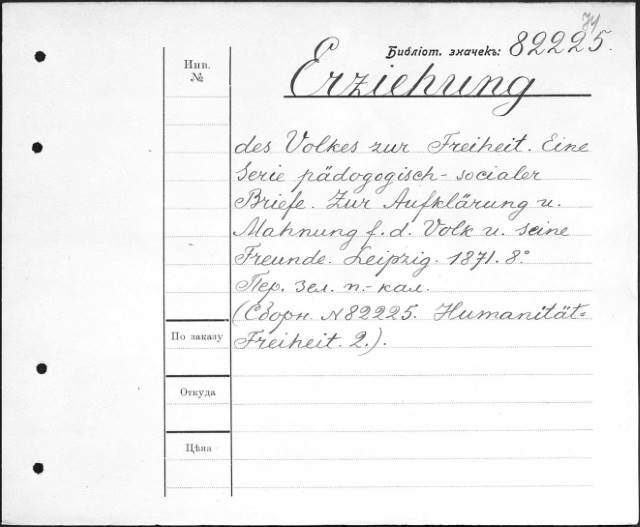 74
Библіот. значекъ: 82225.
Инв.
№
Erziehung
des Volkes zur Freiheit. Eine
Serie pädogogisch-socialer
Briefe. Zur Aufklärung u.
Mahnung f. d. Volk u. seine
Freunde. Leipzig. 1871. 8°.
Пер. зел. п.-кал.
(Сборн. N 82225. Humanität-
По заказу
Freiheit. 2.).
Откуда
Цѣна